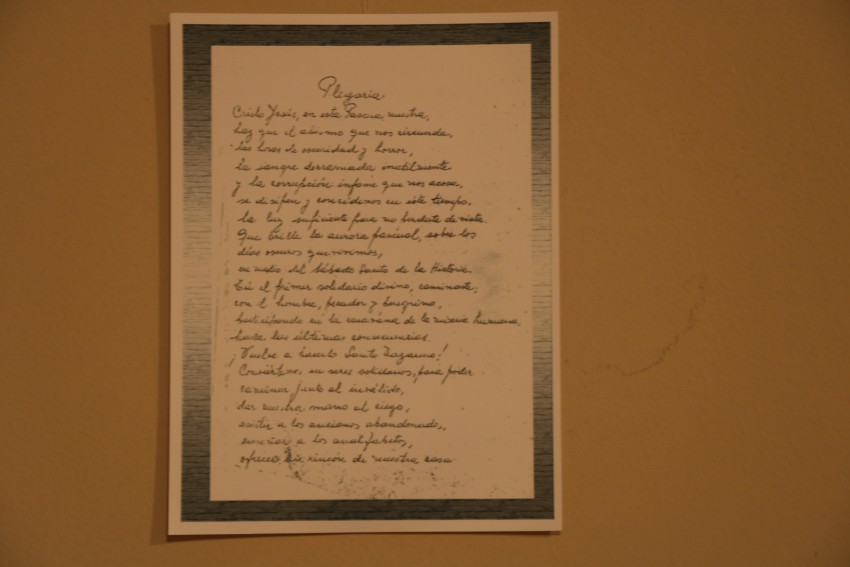 Plegaria
Cristo Jesús, en esta Pascua nuestra,
haz que el abismo que nos circunda,
las horas de oscuridad y horror,
la sangre derramada inutilmente
y la corrupción infame que nos acosa,
se disipen y concédenos en este tiempo,
la luz suficiente para no perderte de vista.
Que brille la aurora pascual, sobre los
días oscuros que vivimos,
en medio del Sábado Santo de la Historia.
Tú el primer solidario divino, caminaste,
con el hombre, pecador y peregrino,
participando en la caravana de la miseria humana,
hasta las últimas consecuencias.
¡Vuelve a hacerlo Santo Nazareno!
Conviértenos en seres solidarios, para poder
caminar junto al inválido,
dar nuestra mano al ciego,
asistir a los ancianos abandonados,
enseñar a los analfabetos,
ofrecer un rincón de nuestra casa